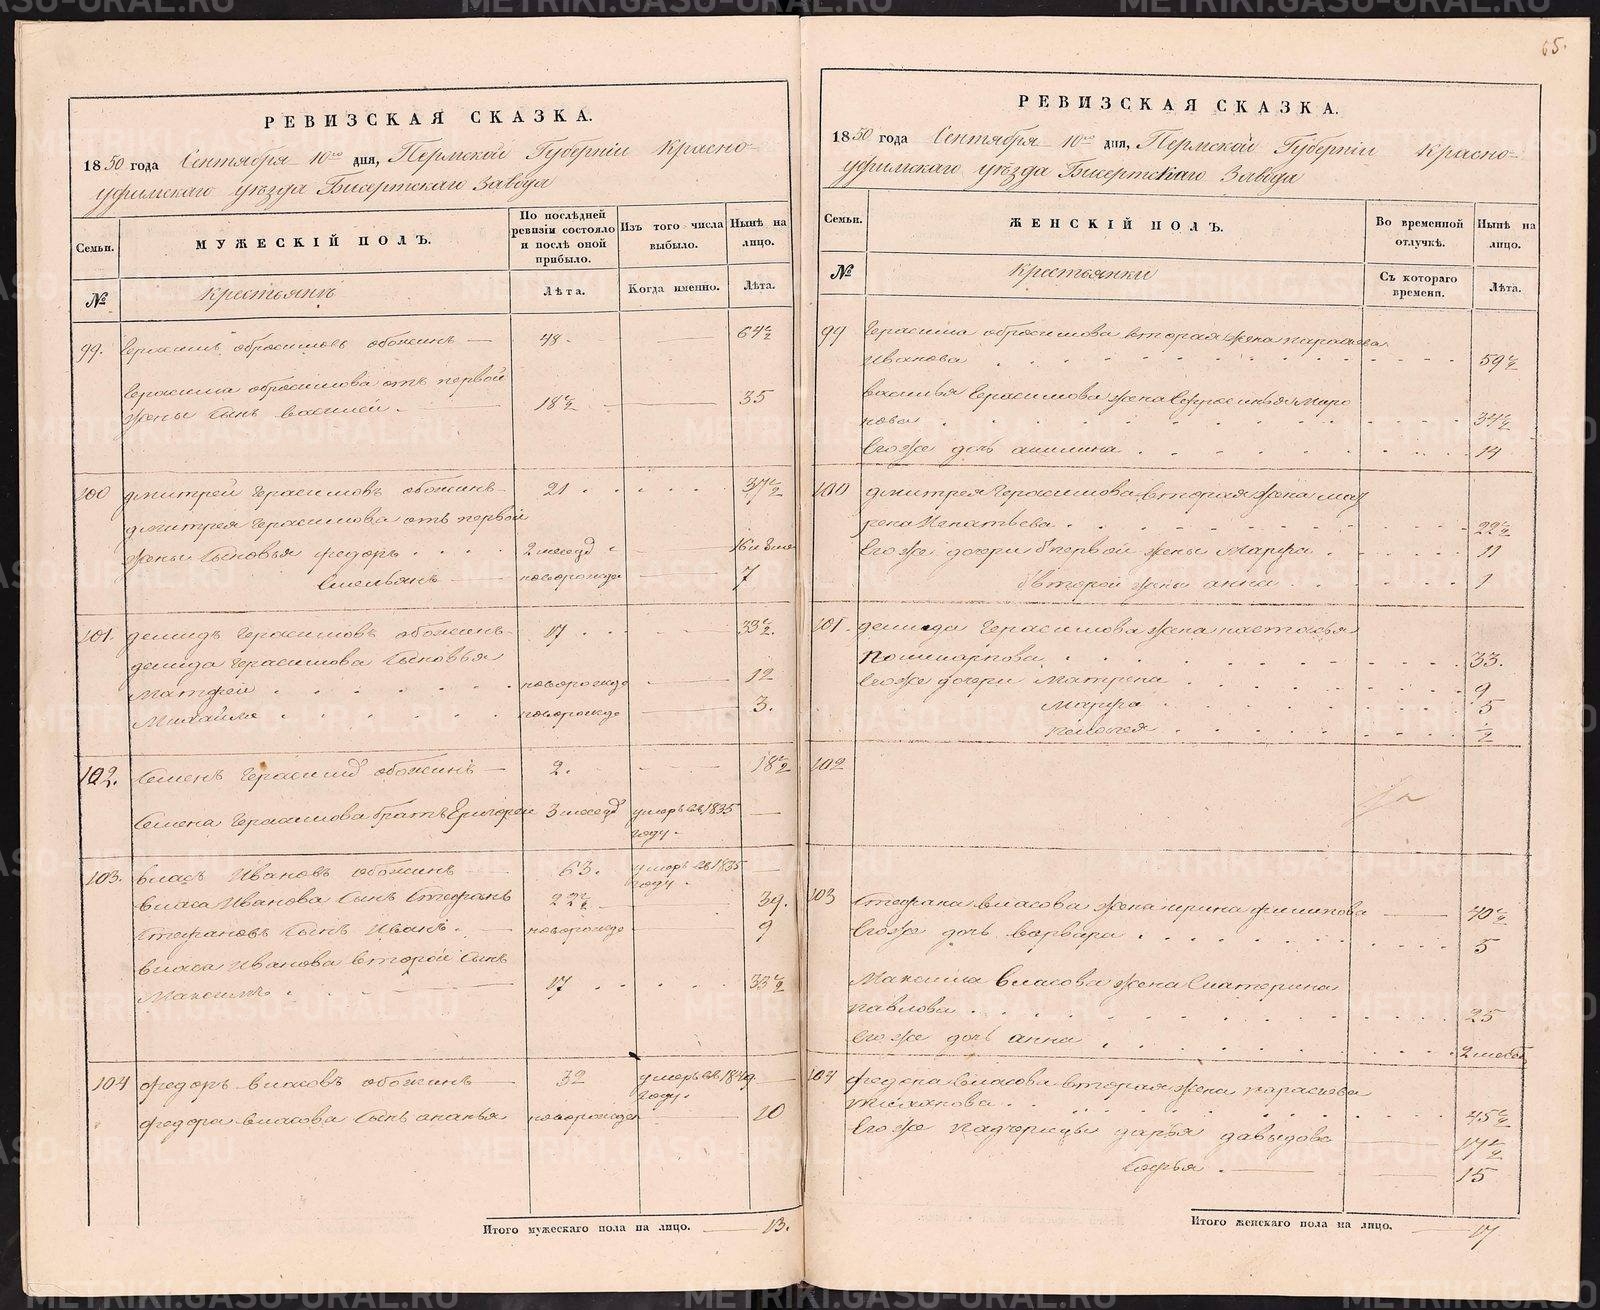 РЕВИЗСКАЯ СКАЗКА.
1850 года Сентября 10го дня, Пермской Губерніи Красно=
уфимскаго уѣзда Бисертскаго Завода
Семьи.
МУЖЕСКІЙ ПОЛЪ.
По послѣдней ревизіи состояло и послѣ оной прибыло.
Изъ того числа выбыло.
Нынѣ на лицо.
№
Крестьянъ
Лѣта.
Когда именно.
Лѣта.
99. Герасимъ обросимовъ обожинъ 48. 64 1/2
Герасима обросимова отъ первой
жены сынъ василей. 18 1/2 35
100 дмитрей Герасимовъ обожинъ 21 37 1/2
дмитрея Герасимова отъ первой
жены сыновья федоръ 2 месец
Емельянъ новорожде 7
101. демидъ Герасимовъ обожинъ 17 33 1/2.
демида Герасимова сыновья
Матфей новорожде 12
Михайло новорожде 3.
102. Семенъ Герасимо обожинъ 2. 18 1/2
Семена Герасимова братъ Григорей 3 месец умеръ въ 1835
году.
103. власъ Ивановъ обожинъ 63. умеръ въ 1835
году.
власа Иванова сынъ Стефанъ 22 1/2 39.
Стефановъ сынъ Иванъ. новорожде 9
власа Иванова второй сынъ
Максимъ. 17 33 1/2
104 федоръ власовъ обожинъ 32 умеръ въ 1849
году.
федора власова сынъ ананья новорожде 10
Итого мужескаго пола на лицо. 13.
65.
РЕВИЗСКАЯ СКАЗКА.
1850 года Сентября 10го дня, Пермской Губерніи Красно=
уфимскаго уѣзда Бисертскаго Завода
Семьи.
ЖЕНСКІЙ ПОЛЪ.
Во временной отлучкѣ.
Нынѣ на лицо.
№
Крестьянки
Съ котораго времени.
Лѣта.
99 Герасима обросимова вторая жена парасковья
Иванова 59 1/2
василья Герасимова жена Миро
нова 34 1/2
Егоже дочь акилина 14
100 дмитрея Герасимова вторая жена мат
рена Игнатьева 22 1/2
Егоже дочери отпервой жены Марфа 11
отвторой жены анна 1
101. демида Герасимова жена настасья
Поликарпова 33.
Егоже дочери Матрена 9
Марфа 5
пелагея 1/2
102
103 Стефана власова жена ирина филипова 40 1/2
Егоже дочь варвара 5
Максима власова жена Екатерина
павлова 25
Егоже дочь анна
104 федора власова вторая жена парасковья
45 1/2
Егоже падчерицы дарья давыдова 17 1/2
Софья. 15
Итого женскаго пола на лицо. 17
METRIKI.GASO-URAL.RU